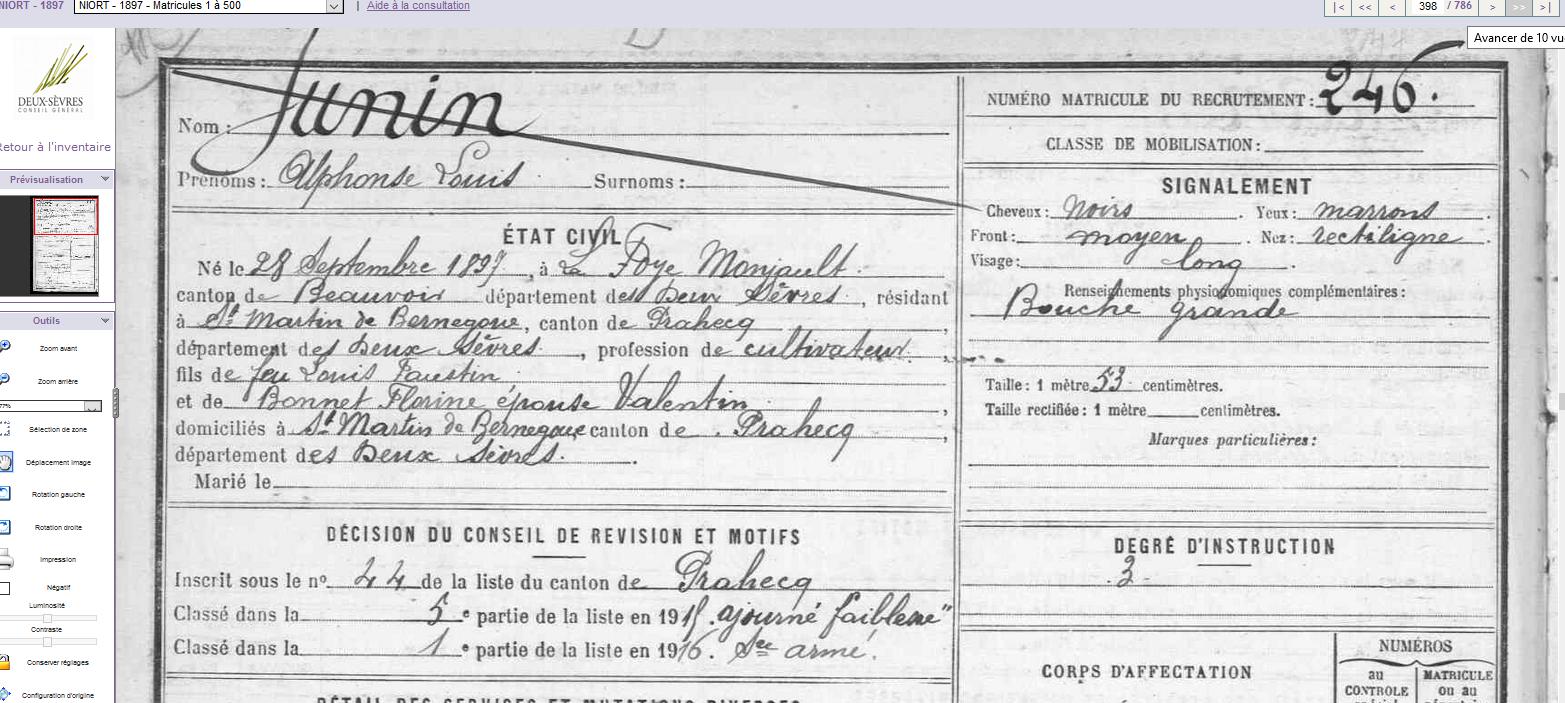 NIORT - 1897
NIORT - 1897 - Matricules 1 à 500
| Aide à la consultation
|<
<<
<
398 / 786
>
>>
>|
Avancer de 10 vu
DEUX-SÈVRES
CONSEIL GÉNÉRAL
Retour à l'inventaire
Prévisualisation
Outils
Zoom avant
Zoom arrière
77%
Sélection de zone
Déplacement image
Rotation gauche
Rotation droite
Impression
Négatif
Luminosité
Contraste
Conserver réglages
Configuration d'origine
Nom : Junin
Prénoms : Alphonse Louis Surnoms :
ÉTAT CIVIL
Né le 28 Septembre 1897, à La Foye Monjault
canton de Beauvoir département des Deux Sèvres, résidant
à St Martin de Bernegoue, canton de Prahecq,
département des Deux Sèvres, profession de cultivateur
fils de feu Louis Faustin
et de Bonnet Florine épouse Valentin,
domiciliés à St Martin de Bernegoue canton de Prahecq,
département des Deux Sèvres.
Marié le
DÉCISION DU CONSEIL DE REVISION ET MOTIFS
Inscrit sous le no 44 de la liste du canton de Prahecq
Classé dans la 5e partie de la liste en 1915. ajourné faiblesse"
Classé dans la 1e partie de la liste en 1916. Sce armé.
DÉTAIL DES SERVICES ET MUTATIONS DIVERSES
NUMÉRO MATRICULE DU RECRUTEMENT : 246.
CLASSE DE MOBILISATION :
SIGNALEMENT
Cheveux : noirs. Yeux : marrons.
Front : moyen. Nez : rectiligne.
Visage : long.
Renseignements physionomiques complémentaires :
Bouche grande
Taille : 1 mètre 53 centimètres.
Taille rectifiée : 1 mètre centimètres.
Marques particulières :
DEGRÉ D'INSTRUCTION
3
CORPS D'AFFECTATION
NUMÉROS
au
CONTROLE
MATRICULE
ou au